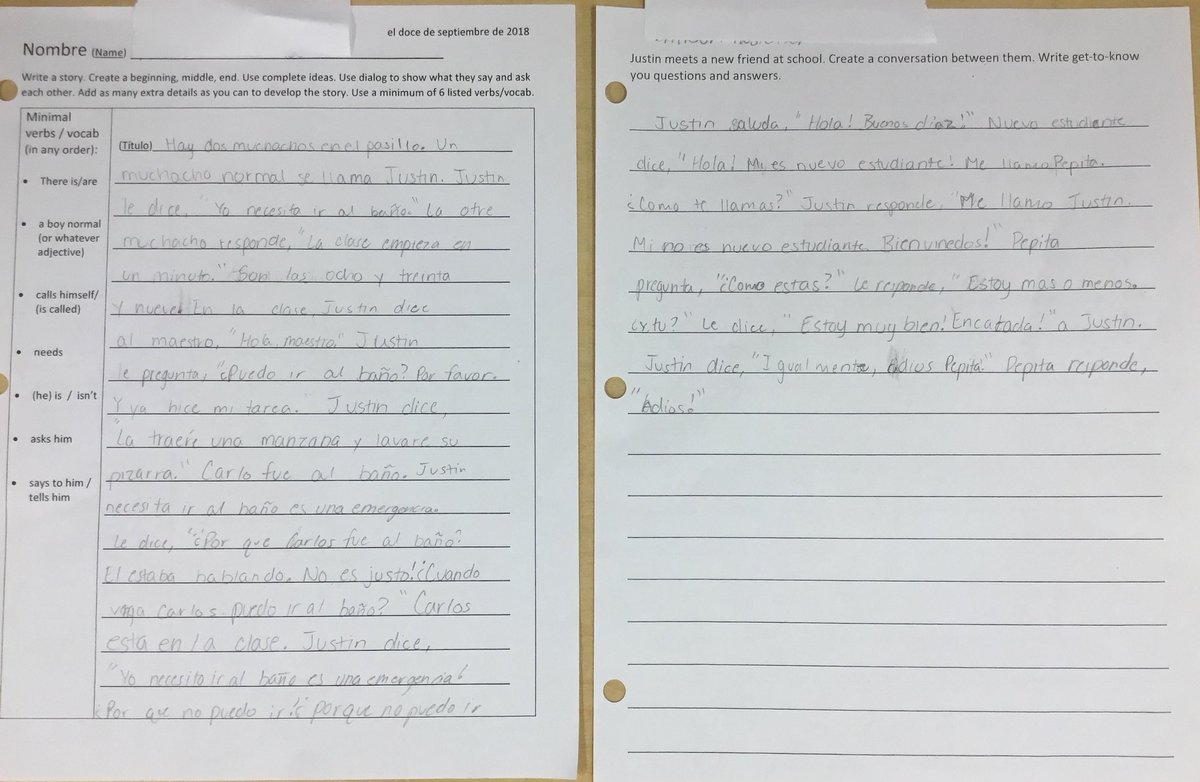 el doce de septiembre de 2018
Nombre (Name)
Write a story. Create a beginning, middle, end. Use complete ideas. Use dialog to show what they say and ask
each other. Add as many extra details as you can to develop the story. Use a minimum of 6 listed verbs/vocab.
Minimal
verbs / vocab
(in any order):
• There is/are
• a boy normal
(or whatever
adjective)
• calls himself/
(is called)
• needs
• (he) is / isn't
• asks him
• says to him /
tells him
(Título) Hay dos muchachos en el pasillo. Un
muchacho normal se llama Justin. Justin
le dice, "Yo necesita ir al baño." La otre
muchacho responde, "La clase empieza en
un minuto." Son las ocho y treinta
y nueve. En la clase, Justin dice
al maestro, "Hola, maestro." Justin
le pregunta "¿Puedo ir al baño? Por favor.
Y ya hice mi tarea." Justin dice,
"La traeré una manzana y lavare su
pizarra." Carlo fue al baño. Justin
necesita ir al baño es una emergencia.
Le dice, "¿Por que Carlos fue al baño?
El estaba hablando. No es justo! ¿Cuando
Carlos puedo ir al baño?" Carlos
esta en la clase. Justin dice,
"Yo necesito ir al baño es una emergencia!
¿Por que no puedo ir! ¿porque no puedo ir
Justin meets a new friend at school. Create a conversation between them. Write get-to-know
you questions and answers.
Justin saluda, "Hola! Buenos diaz!" Nuevo estudiante
dice, "Hola! Mi es nuevo estudiante! Me llamo Pepita.
¿Como te llamas?" Justin responde, "Me llamo Justin.
Mi no es nuevo estudiante. Bienvinedos!" Pepita
pregunta, "¿Como estas?" Le responde, "Estoy mas o menos.
¿Y tu?" Le dice, "Estoy muy bien! Encatada!" a Justin.
Justin dice, "Igualmente, adios Pepita!" Pepita responde,
"Adios!"